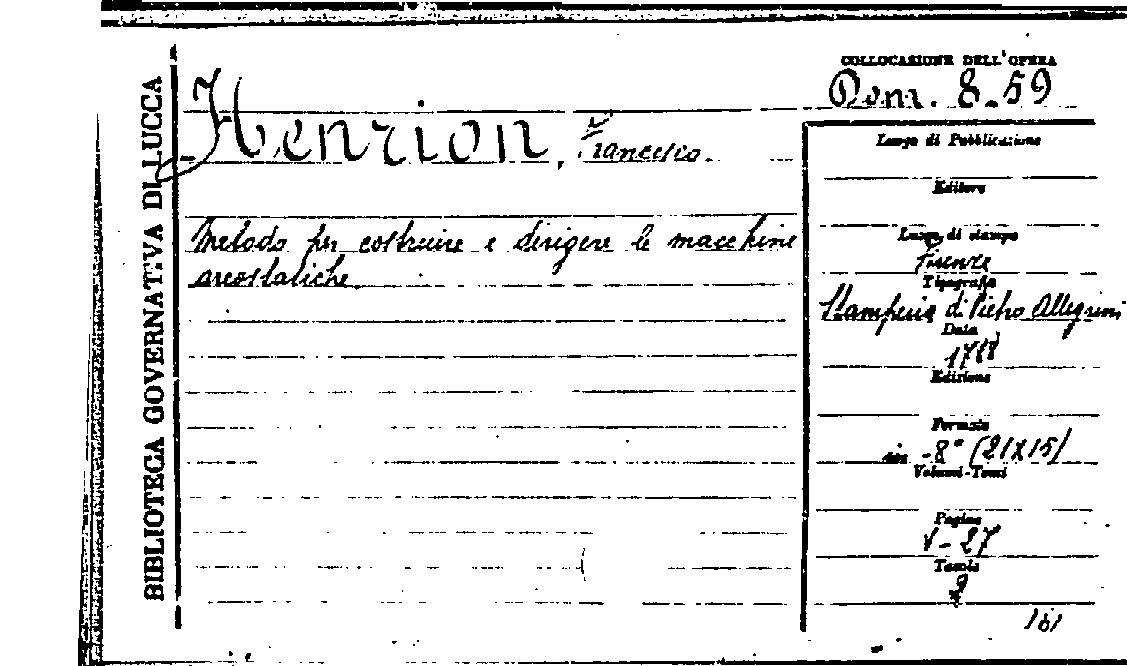 BIBLIOTECA GOVERNATIVA DI LUCCA
Henrion, Francesco.
Metodo per costruire e dirigere le macchine
areostatiche.
COLLOCAZIONE DELL'OPERA
Dom. 8.59
Luogo di Pubblicazione
Editore
Luogo di stampa
Firenze
Tipografia
Stamperia di Pietro Allegrini
Data
Edizione
Formato
in -8° (21x15)
Volumi-Tomi
Pagine
V-27
Tavole
161